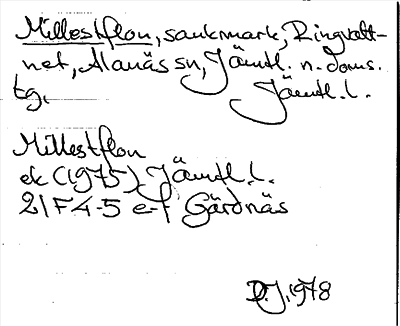 Millestflon, sankmark, Ringvatt-
net, Alanäs sn, Jämtl. n. doms.
tg. Jämtl. l.
Millestflon
ek (1975) Jämtl. l.
21F 4-5 e-f Gärdnäs
D.J. 1978